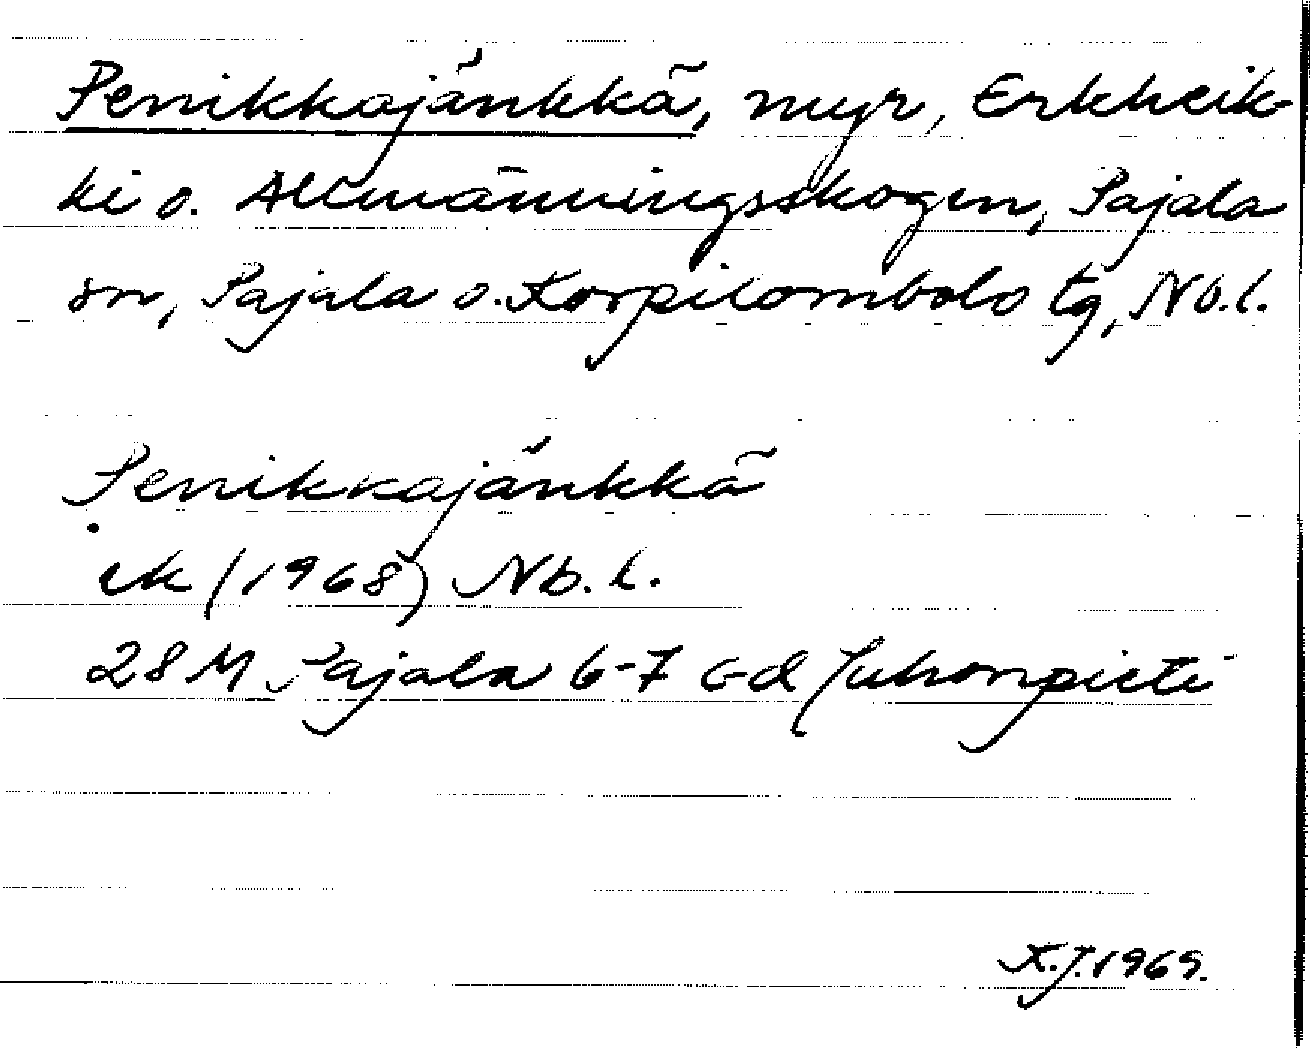 Penikkajänkkä, myr, Erkheik-
ki o. Allmänningsskogen, Pajala
sn, Pajala o. Korpilombolo tg, Nb.l.
Penikkajänkkä
ek (1968) Nb. l.
28 M Pajala 6-7 c-d Juhonpieti
K.J. 1969.